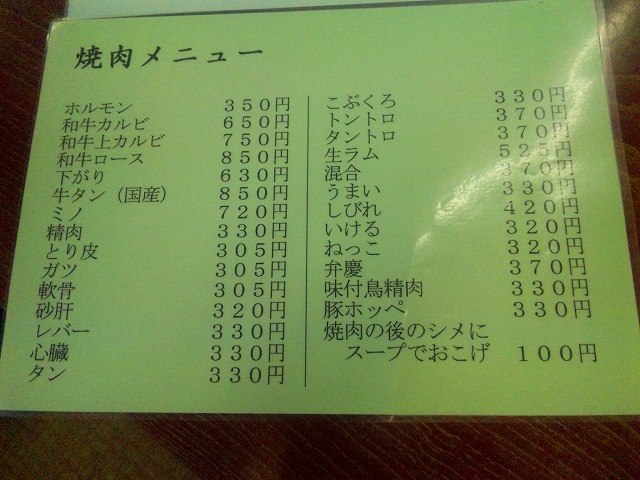 焼肉メニュー
ホルモン ３５０円
和牛カルビ ６５０円
和牛上カルビ ７５０円
和牛ロース ８５０円
下がり ６３０円
牛タン（国産） ８５０円
ミノ ７２０円
精肉 ３３０円
とり皮 ３０５円
ガツ ３０５円
軟骨 ３０５円
砂肝 ３２０円
レバー ３３０円
心臓 ３３０円
タン ３３０円
こぶくろ ３３０円
トントロ ３７０円
タントロ ３７０円
生ラム ５２５円
混合 ３７０円
うまい ３３０円
しびれ ４２０円
いける ３２０円
ねっこ ３２０円
弁慶 ３７０円
味付鳥精肉 ３３０円
豚ホッペ ３３０円
焼肉の後のシメに
スープでおこげ １００円